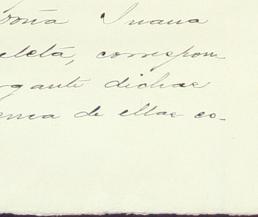 doña Juana
eleta, correspon
rgante dichas
erna de ellas co-